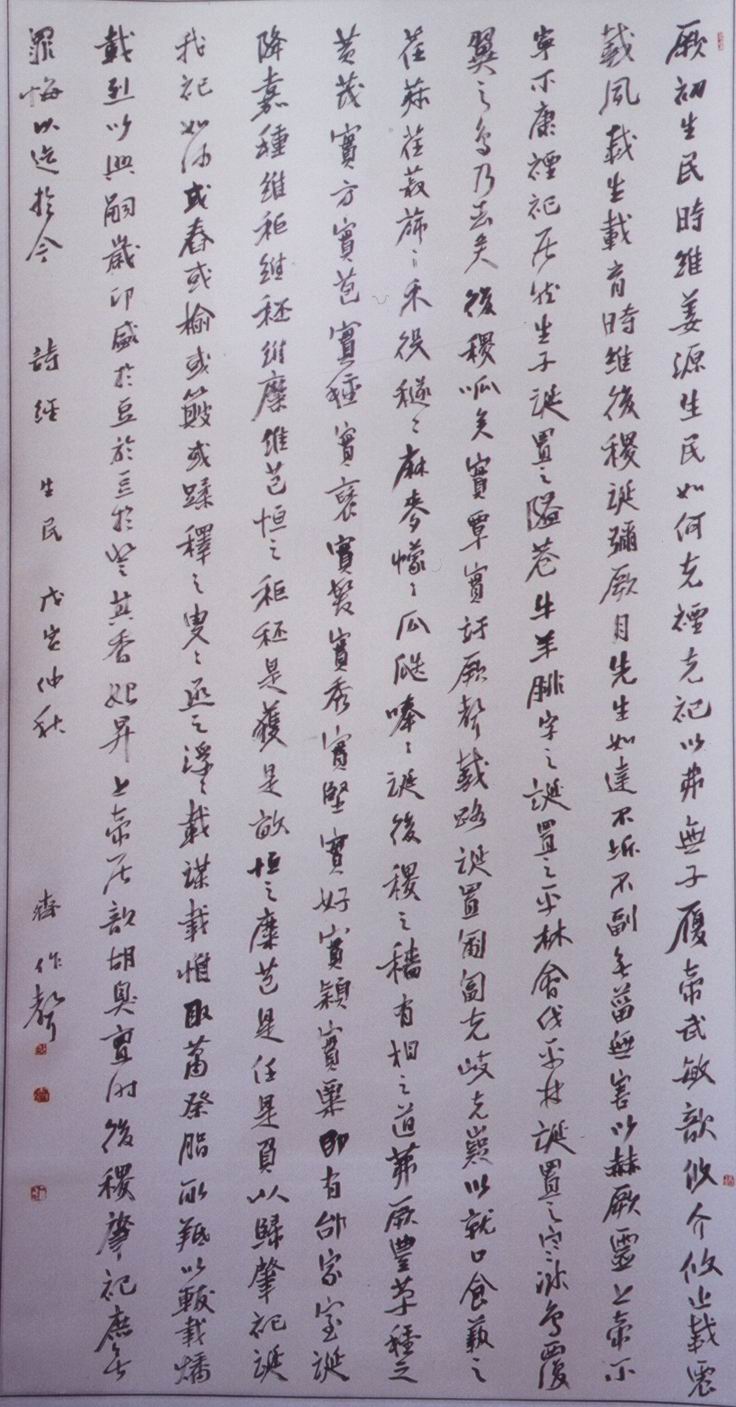 厥初生民時維姜源生民如何克禋克祀以弗無子履帝武敏歆攸介攸止載震
載夙載生載育時維後稷誕彌厥月先生如達不坼不副無菑無害以赫厥靈上帝不
寧不康禋祀居然生子誕置之隘巷牛羊腓字之誕置之平林會伐平林誕置之寒冰鳥覆
翼之鳥乃去矣後稷呱矣實覃實訏厥聲載路誕置匍匐克岐克嶷以就口食蓺之
荏菽荏菽旆〻禾役穟〻麻麥幪〻瓜瓞唪〻誕後稷之穡有相之道茀厥豐草種之
黄茂實方實苞實種實褎實發實秀實堅實好實穎實粟即有邰家室誕
降嘉種維秬維秠維穈維芑恒之秬秠是穫是畝恒之穈芑是任是負以歸肇祀誕
我祀如何或舂或揄或簸或蹂釋之叟〻烝之浮〻載謀載惟取蕭祭脂取羝以軷載燔
載烈以興嗣歲卬盛於豆於豆於登其香始昇上帝居歆胡臭亶時後稷肇祀庶無
罪悔以迄於今 詩經 生民 戊寅仲秋 齊作聲